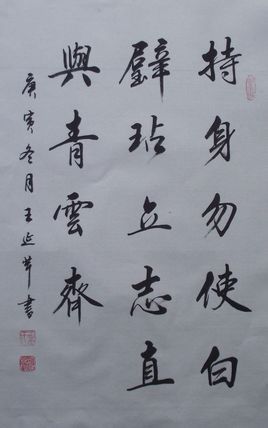 持身勿使白
璧玷立志直
與青雲齊
庚寅冬月王延芹書